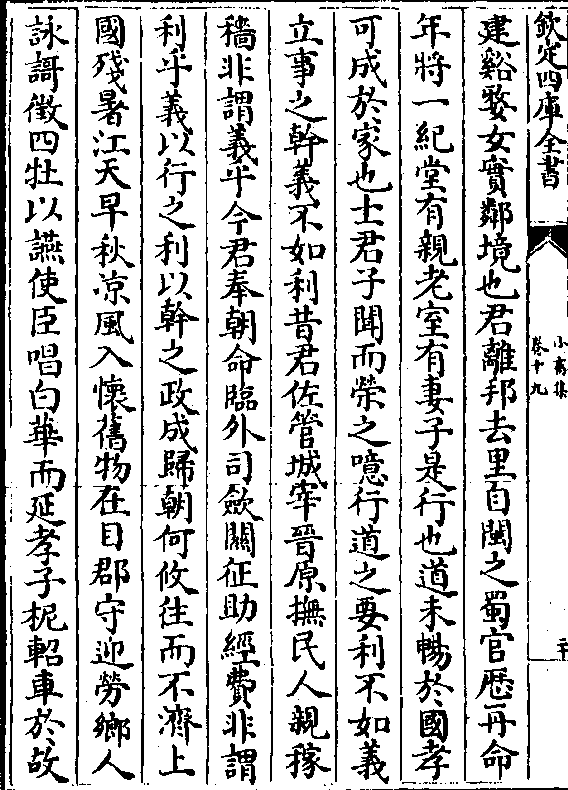 欽定四庫全書
小畜集
卷十九
建谿婺女實鄰境也君離邦去里自閩之蜀官厯再命
年將一紀堂有親老室有妻子是行也道未暢於國孝
可成於家也士君子聞而榮之噫行道之要利不如義
立事之幹義不如利昔君佐管城宰晉原撫民人親稼
穡非謂義乎今君奉朝命臨外司斂關征助經費非謂
利乎義以行之利以幹之政成歸朝何攸往而不濟上
國殘暑江天早秋凉風入懷舊物在目郡守迎勞鄉人
詠謌徵四牡以讌使臣唱白華而延孝子柅軺車於故